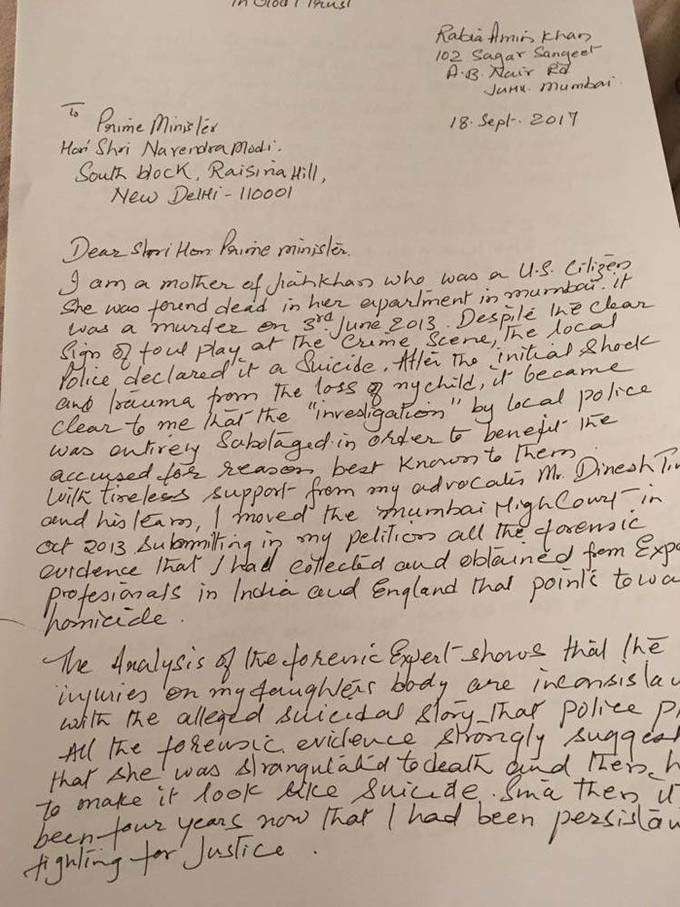 In God I Trust
Rabia Amin Khan
102 Sagar Sangeet
A.B. Nair Rd
Juhu. Mumbai.
18. Sept. 2017
To
Prime Minister
Hon Shri Narendra Modi.
South block, Raisina Hill,
New Delhi - 110001
Dear Shri Hon Prime minister.
I am a mother of Jiah Khan who was a U.S. Citizen
She was found dead in her apartment in mumbai. It
was a murder on 3rd June 2013. Despite the clear
Sign of foul play at the Crime Scene, The local
Police declared it a Suicide. After the initial Shock
and trauma from the loss of my child, it became
clear to me that the "investigation" by local police
was entirely Sabotaged in order to benefit the
accused for reason best known to them.
With tireless support from my advocates Mr. Dinesh
and his team, I moved the mumbai High Court in
Oct 2013 Submitting in my petition all the forensic
evidence that I had collected and obtained from Exp
profesionals in India and England that points towa
homicide.
The Analysis of the forensic Expert shows that the
injuries on my daughters body are
with the alleged suicidal story that police p
All the forensic evidence strongly suggest
that she was strangulated to death and then h
to make it look like suicide. it
been four years now that I had been
fighting for Justice.